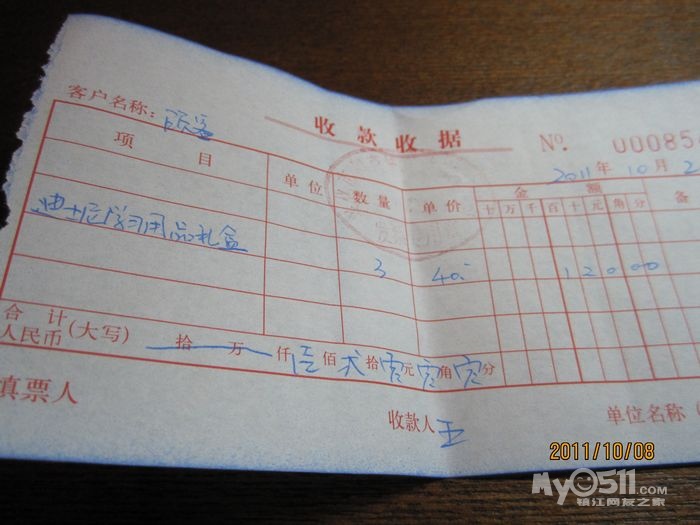 收款收据
客户名称:
№. 00085
2011年10月2
项目 单位 数量 单价 金额 备
十万千百十元角分
迪士尼学习用品礼盒 3 40.- 12000
合计
人民币(大写) 拾万仟壹佰贰拾零元零角零分
填票人 收款人 王 单位名称(
2011/10/08
My0511.com
镇江网友之家